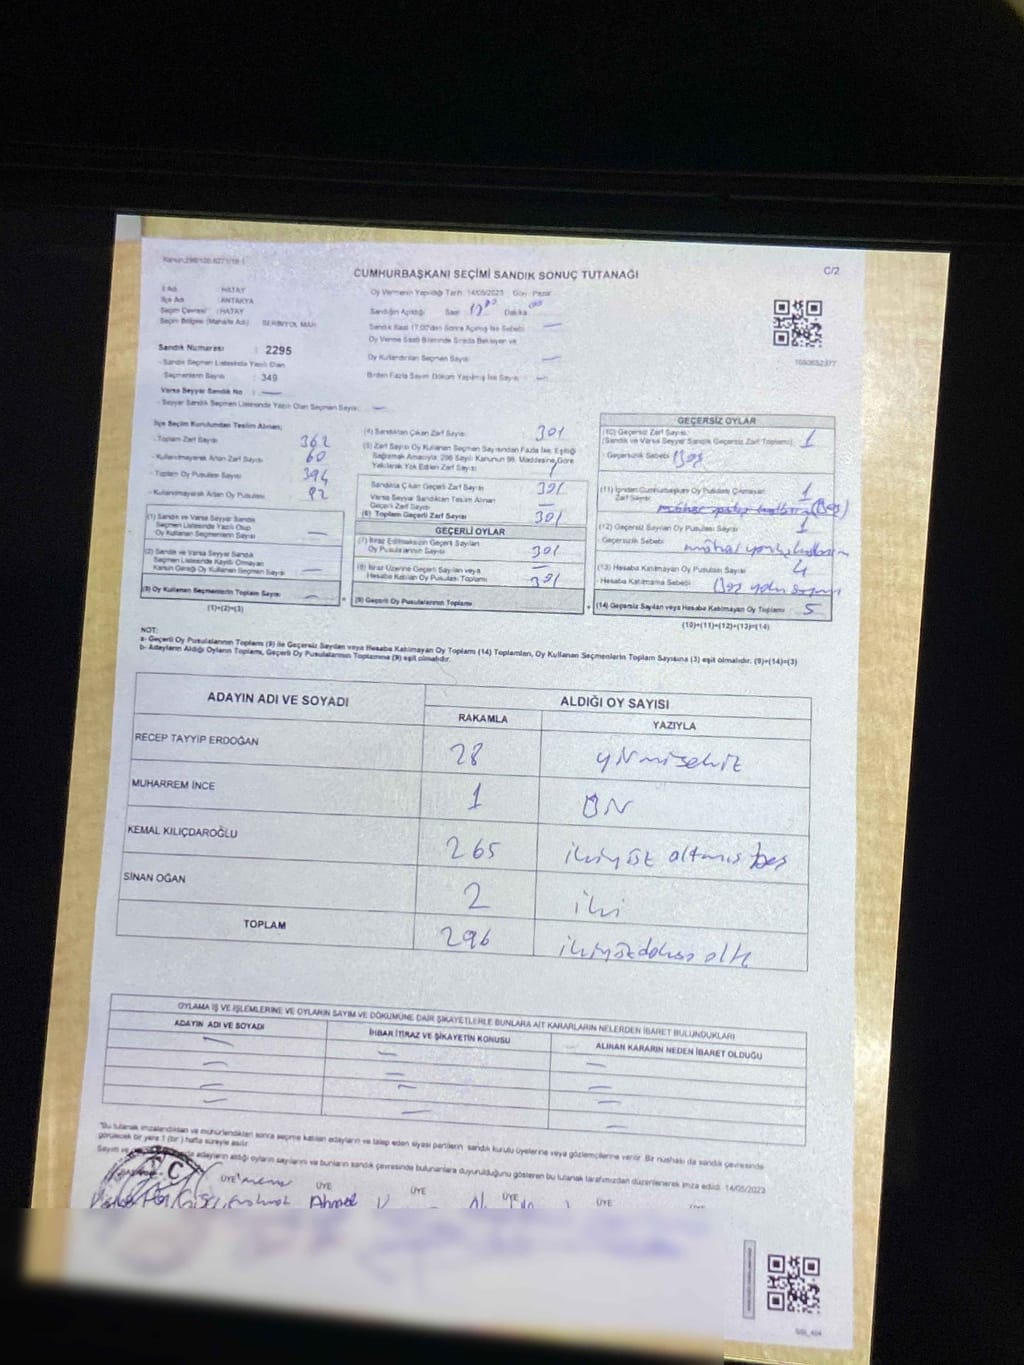 Kanun:298/126-6271/18-1
CUMHURBAŞKANI SEÇİMİ SANDIK SONUÇ TUTANAĞI
C/2
İl Adı : HATAY
İlçe Adı : ANTAKYA
Seçim Çevresi : HATAY
Seçim Bölgesi (Mahalle Adı) : SERİNYOL MAH
Sandık Numarası : 2295
- Sandık Seçmen Listesinde Yazılı Olan
Seçmenlerin Sayısı : 349
Varsa Seyyar Sandık No : —
- Seyyar Sandık Seçmen Listesinde Yazılı Olan Seçmen Sayısı : —
Oy Vermenin Yapıldığı Tarih : 14/05/2023 Gün : Pazar
Sandığın Açıldığı Saat Dakika
Sandık Saat 17.00'den Sonra Açılmış İse Sebebi —
Oy Verme Saati Bitiminde Sırada Bekleyen ve
Oy Kullandırılan Seçmen Sayısı —
Birden Fazla Sayım Döküm Yapılmış İse Sayısı —
İlçe Seçim Kurulundan Teslim Alınan;
- Toplam Zarf Sayısı 362
- Kullanılmayarak Artan Zarf Sayısı 60
- Toplam Oy Pusulası Sayısı 394
- Kullanılmayarak Artan Oy Pusulası 92
(1) Sandık ve Varsa Seyyar Sandık
Seçmen Listesinde Yazılı Olup
Oy Kullanan Seçmenlerin Sayısı —
(2) Sandık ve Varsa Seyyar Sandık
Seçmen Listesinde Kayıtlı Olmayan
Kanun Gereği Oy Kullanan Seçmen Sayısı —
(3) Oy Kullanan Seçmenlerin Toplam Sayısı —
(1)+(2)=(3)
(4) Sandıktan Çıkan Zarf Sayısı 301
(5) Zarf Sayısı Oy Kullanan Seçmen Sayısından Fazla İse, Eşitliği
Sağlamak Amacıyla, 298 Sayılı Kanunun 98. Maddesine Göre
Yakılarak Yok Edilen Zarf Sayısı
Sandıkta Çıkan Geçerli Zarf Sayısı 301
Varsa Seyyar Sandıktan Teslim Alınan
Geçerli Zarf Sayısı —
(6) Toplam Geçerli Zarf Sayısı 301
GEÇERLİ OYLAR
(7) İtiraz Edilmeksizin Geçerli Sayılan
Oy Pusulalarının Sayısı 301
(8) İtiraz Üzerine Geçerli Sayılan veya
Hesaba Katılan Oy Pusulası Toplamı 301
(9) Geçerli Oy Pusulalarının Toplamı
GEÇERSİZ OYLAR
(10) Geçersiz Zarf Sayısı
(Sandık ve Varsa Seyyar Sandık Geçersiz Zarf Toplamı) 1
- Geçersizlik Sebebi Boş
(11) İçinden Cumhurbaşkanı Oy Pusulası Çıkmayan
Zarf Sayısı 1
(Boş)
(12) Geçersiz Sayılan Oy Pusulası Sayısı 1
- Geçersizlik Sebebi
(13) Hesaba Katılmayan Oy Pusulası Sayısı 4
- Hesaba Katılmama Sebebi
(14) Geçersiz Sayılan veya Hesaba Katılmayan Oy Toplamı 5
(10)+(11)+(12)+(13)=(14)
1080652377
NOT:
a- Geçerli Oy Pusulalarının Toplamı (9) ile Geçersiz Sayılan veya Hesaba Katılmayan Oy Toplamı (14) Toplamları, Oy Kullanan Seçmenlerin Toplam Sayısına (3) eşit olmalıdır. (9)+(14)=(3)
b- Adayların Aldığı Oyların Toplamı, Geçerli Oy Pusulalarının Toplamına (9) eşit olmalıdır.
ADAYIN ADI VE SOYADI ALDIĞI OY SAYISI
RAKAMLA YAZIYLA
RECEP TAYYİP ERDOĞAN 28 yirmisekiz
MUHARREM İNCE 1 BİR
KEMAL KILIÇDAROĞLU 265 ikiyüz altmış beş
SİNAN OĞAN 2 iki
TOPLAM 296 ikiyüzdoksan altı
OYLAMA İŞ VE İŞLEMLERİNE VE OYLARIN SAYIM VE DÖKÜMÜNE DAİR ŞİKAYETLERLE BUNLARA AİT KARARLARIN NELERDEN İBARET BULUNDUKLARI
ADAYIN ADI VE SOYADI İHBAR İTİRAZ VE ŞİKAYETİN KONUSU ALINAN KARARIN NEDEN İBARET OLDUĞU
"Bu tutanak imzalandıktan ve mühürlendikten sonra seçime katılan adayların ve talep eden siyasi partilerin sandık kurulu üyelerine veya gözlemcilerine verilir. Bir nüshası da sandık çevresinde
görülecek bir yere 1 (bir) hafta süreyle asılır.
Sayım ve adayların aldığı oyların sayılarını ve bunların sandık çevresinde bulunanlara duyurulduğunu gösteren bu tutanak tarafımızdan düzenlenerek imza edildi. 14/05/2023
ÜYE ÜYE ÜYE ÜYE ÜYE
Ahmed